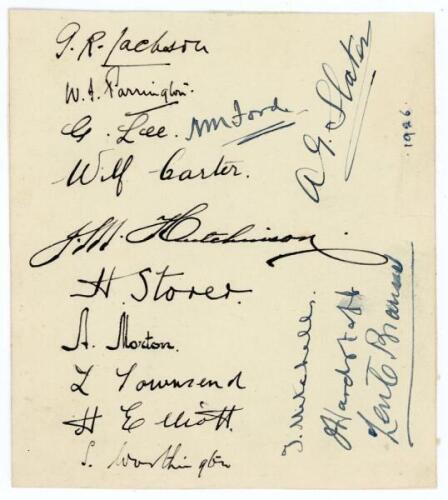 G. R. Jackson
W. J. Farrington.
G. Lee.
NM Forde
Wilf Carter.
A. G. Slater
1926.
J. M. Hutchinson.
H. Storer.
A. Morton.
L Townsend
H Elliott.
S. Worthington
T. Mitchell.
J Hardstaff
Len C Braund